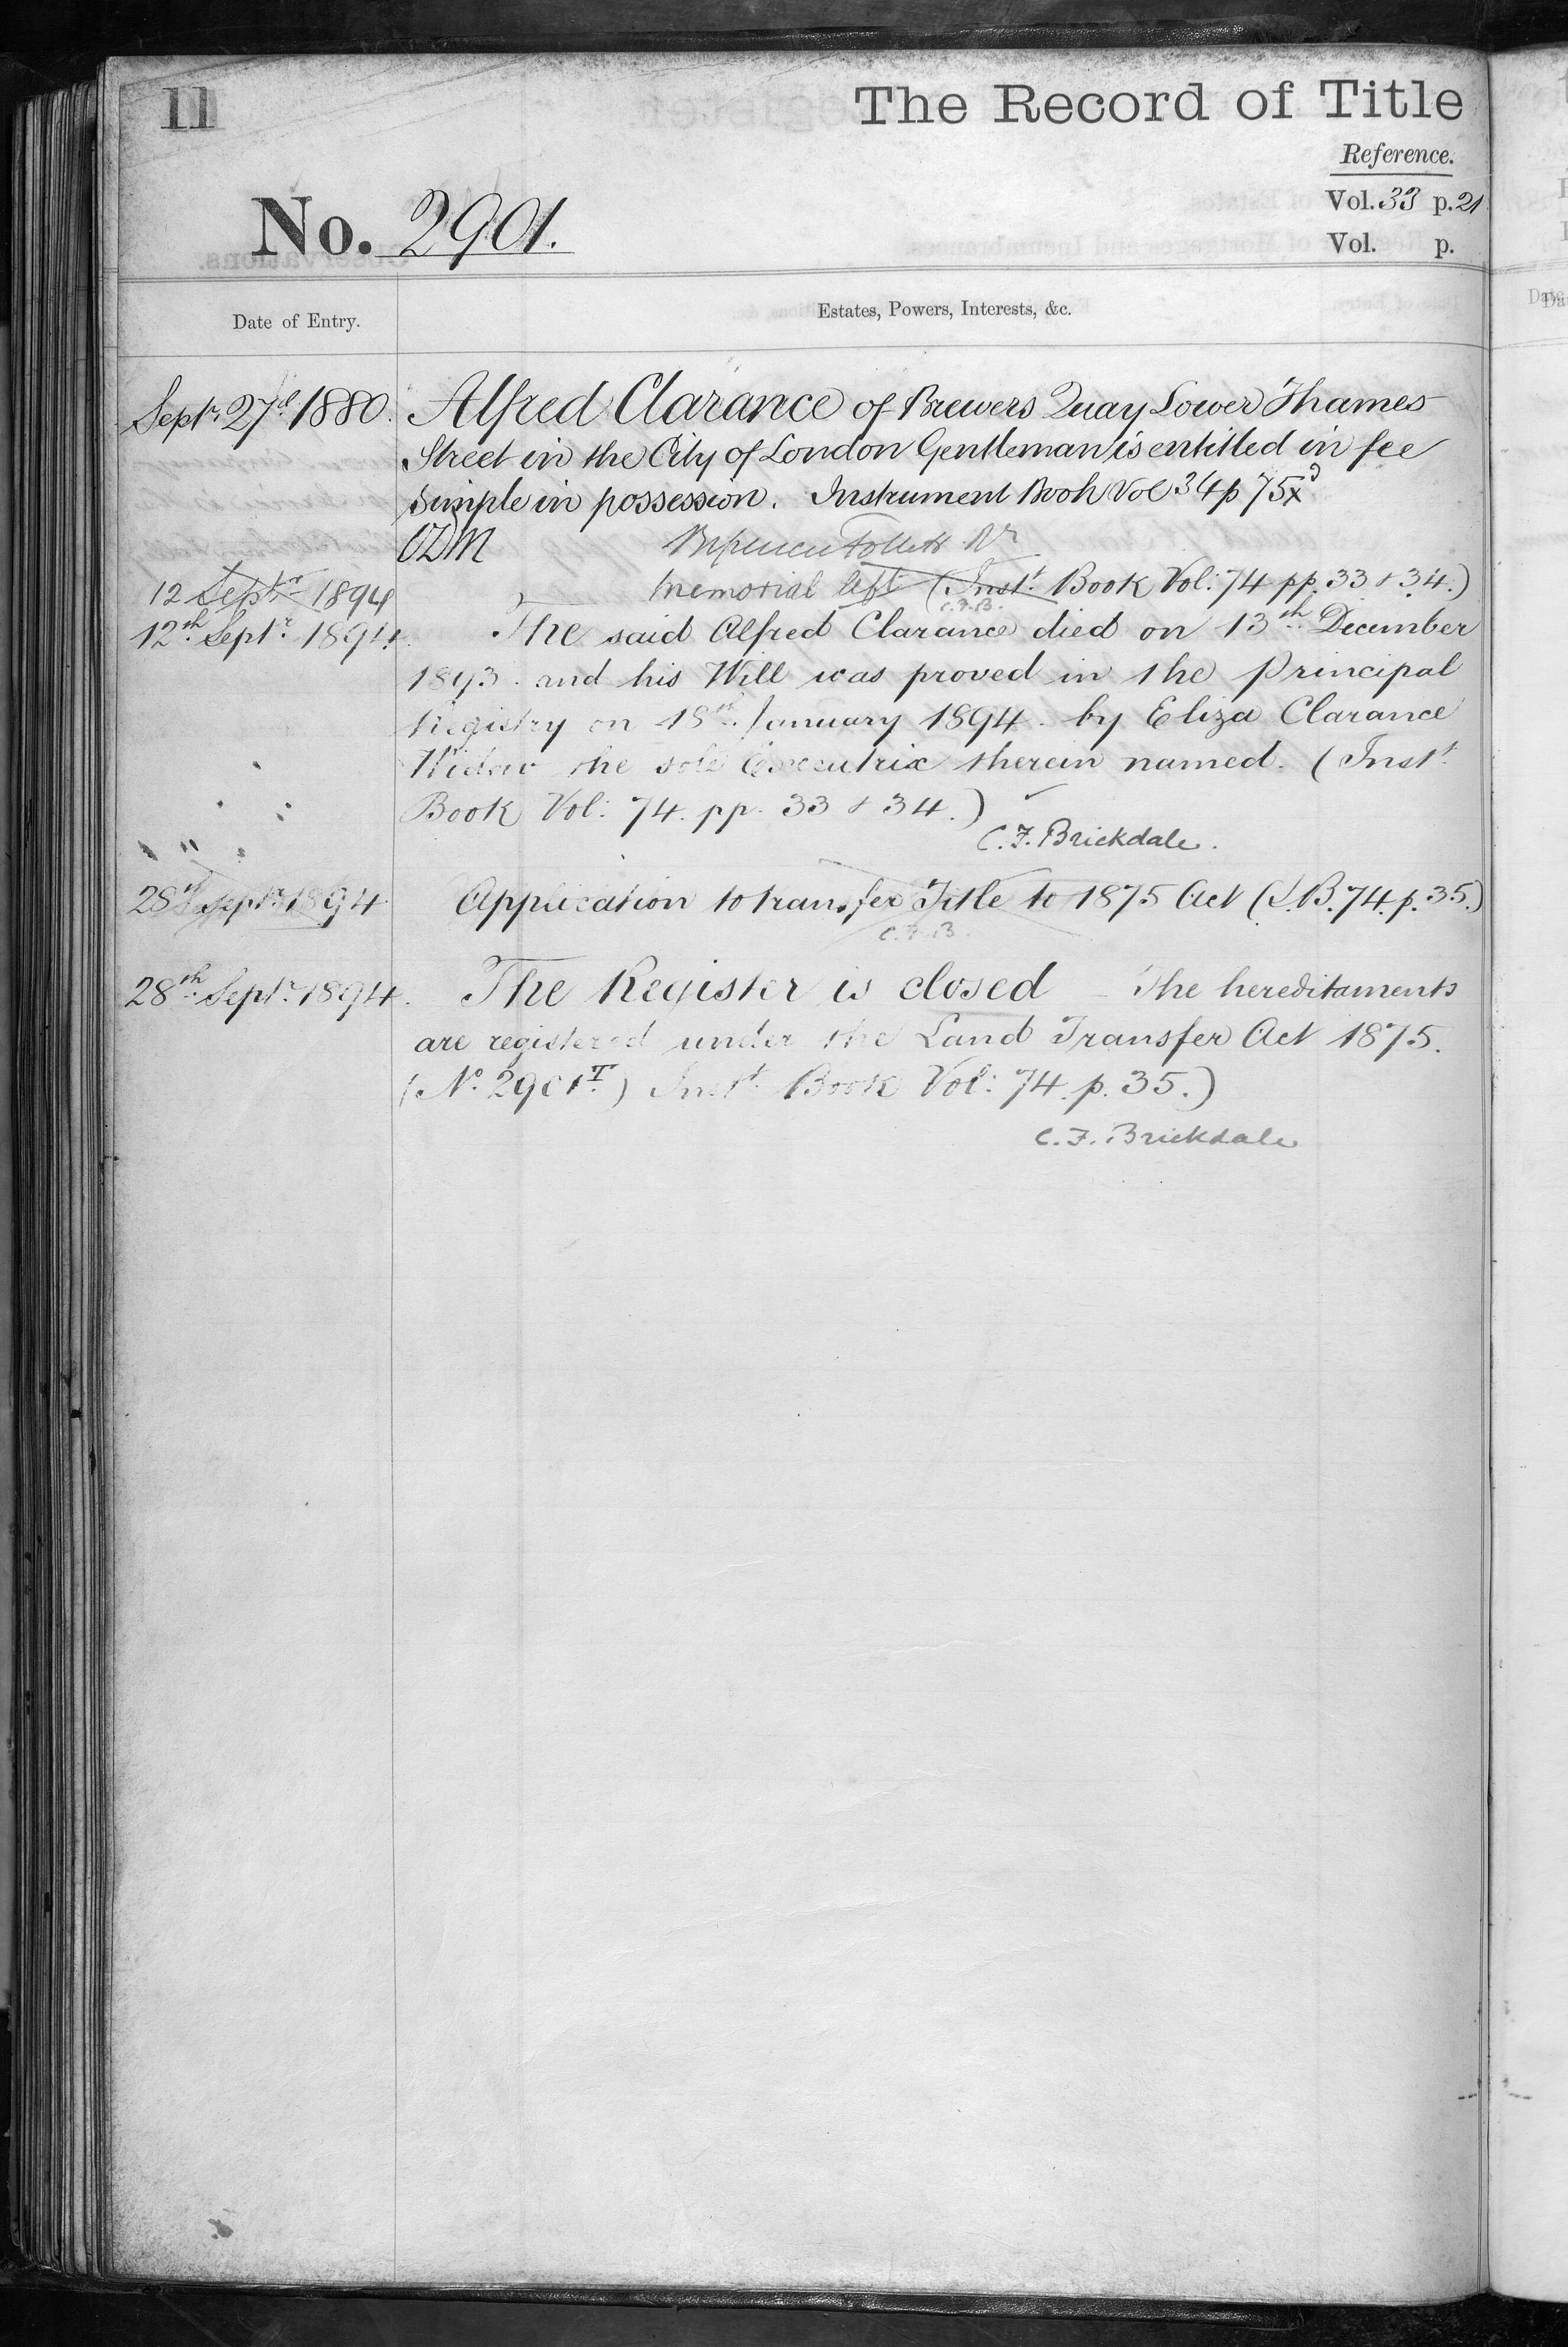 11
The Record of Title
Reference.
No. 2901.
Vol. 33 p. 21
Vol. p.
Date of Entry.
Estates, Powers, Interests, &c.
Septr. 27d. 1880.
Alfred Clarance of Brewers Quay Lower Thames
Street in the City of London Gentleman is entitled in fee
simple in possession. Instrument Book Vol 34 p 75
Follett Rr
12 Septr 1894
Memorial left (Instt. Book Vol: 74 pp. 33 & 34.)
C.F.B.
12th. Septr. 1894.
The said Alfred Clarance died on 13th. December
1893. and his Will was proved in the Principal
Registry on 18th. January 1894. by Eliza Clarance
Widow the sole Executrix therein named. (Instt.
Book Vol: 74. pp. 33 & 34.)
C. F. Brickdale.
28th Septr. 1894
Application to transfer Title to 1875 Act (I.B. 74. p. 35.)
C.F.B.
28th. Septr. 1894.
The Register is closed – The hereditaments
are registered under the Land Transfer Act 1875.
(No. 2901T.) Instt. Book Vol: 74. p. 35.)
C. F. Brickdale